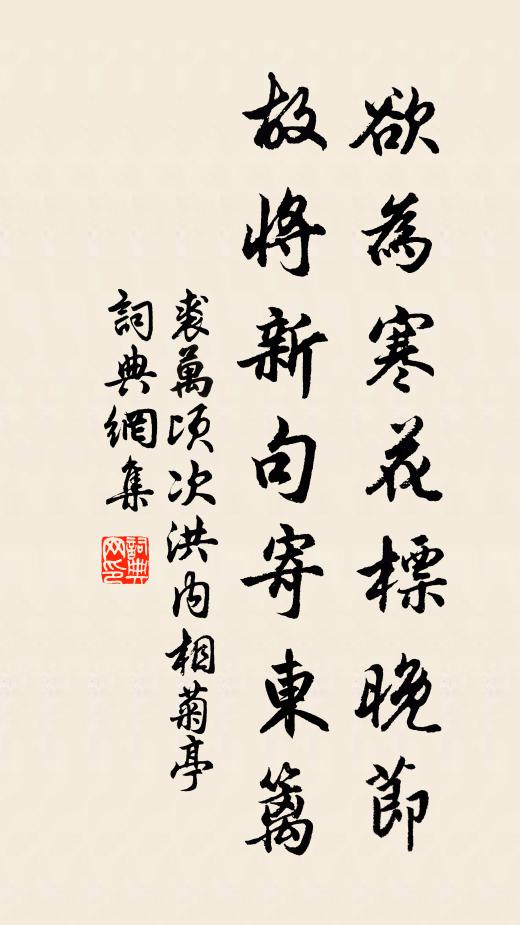 欲為寒花標晚節
故將新句寄東籬
裘萬頃次洪内相菊亭
詞典網集
詞典網印